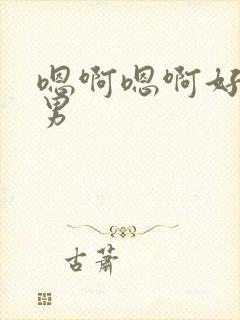 嗯啊嗯啊好
男
古萧